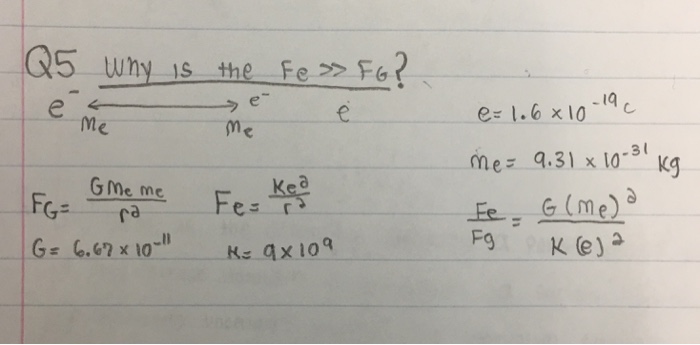 Q5 Why is the Fe >> FG?
e⁻ ⟷ e⁻ e
me me
e = 1.6 × 10⁻¹⁹ C
me = 9.31 × 10⁻³¹ kg
FG = G me me / r² Fe = Ke² / r²
Fe / Fg = G (me)² / K (e)²
G = 6.67 × 10⁻¹¹ K = 9 × 10⁹